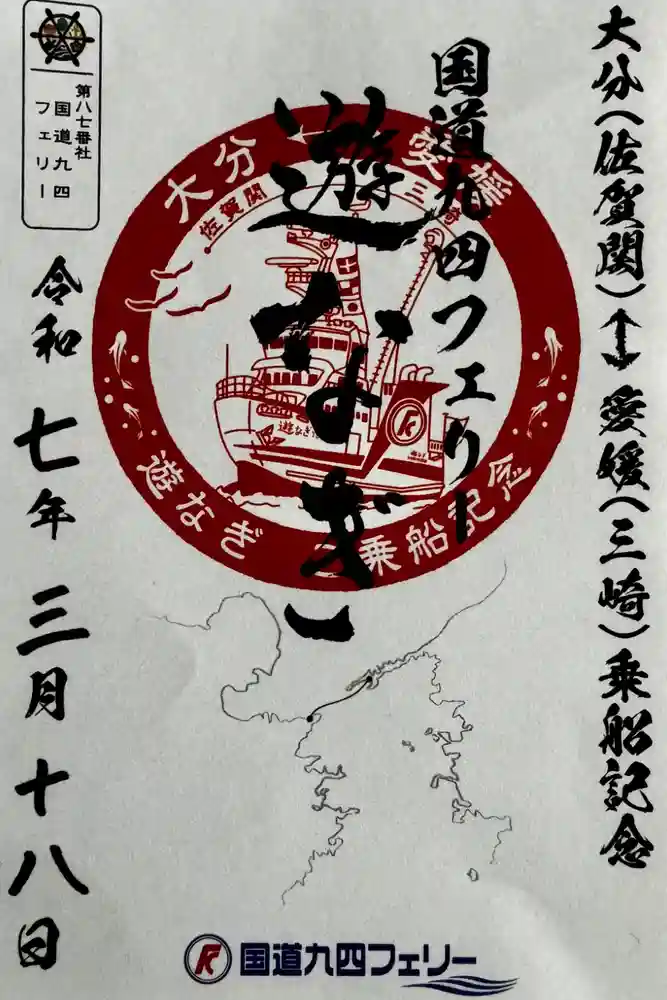 大分(佐賀関)↔愛媛(三崎)乗船記念
国道九四フェリー
遊なぎ
大分
愛媛
佐賀関
三崎
遊なぎ
乗船記念
遊なぎ
第八七番社
国道九四
フェリー
令和七年三月十八日
国道九四フェリー